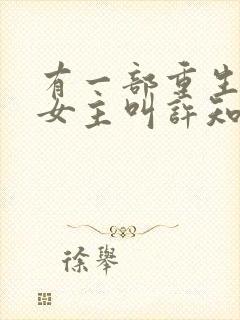 有一部重生
女主叫許知
徐舉